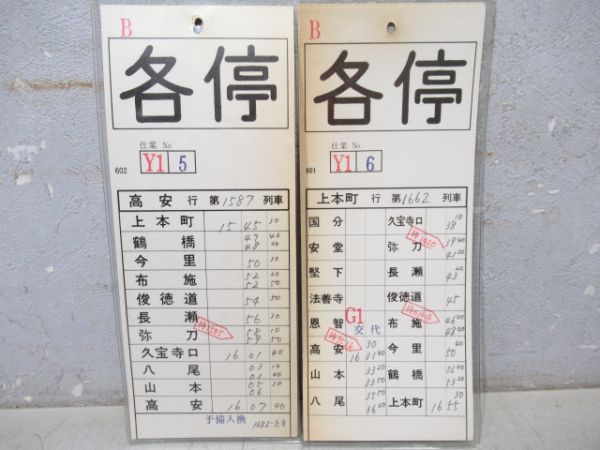 B
各停
仕業 No.
602 Y1 5
高安 行 第 1587 列車
上本町 15 45 10
鶴橋 47 40
48 20
今里 50 10
布施 52 20
52 50
俊徳道 54 50
長瀬 56 10
弥刀 58 10
59 50
久宝寺口 16 01 40
八尾 03 10
03 40
山本 05 10
06
高安 16 07 40
予備入換
B
各停
仕業 No.
601 Y1 6
上本町 行 第 1662 列車
国分
安堂
堅下
法善寺
恩智 G1 交代
高安 30
16 31 40
山本 33 20
33 50
八尾 35 50
36 20
久宝寺口 38 10
弥刀 39 40
41 20
長瀬 43 20
俊徳道 45
布施 46 40
48 20
今里 50 40
鶴橋 52 40
53 20
上本町 16 55 30